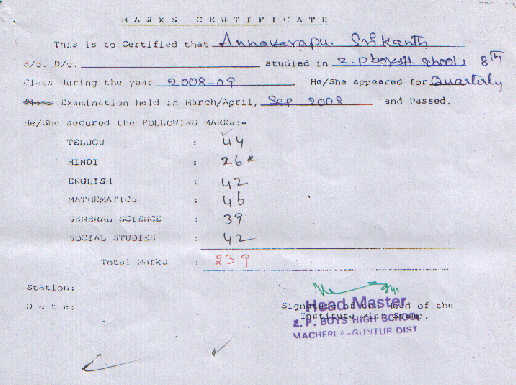 MARKS CERTIFICATE
This is to Certified that Annavarapu. Srikanth
S/o. D/o. studied in Z.P Boys.H. School 8th
Class during the year 2008-09 He/She Appeared for Quarterly
Class Examination held in March/April, Sep 2008 and Passed.
He/She secured the FOLLOWING MARKS:-
TELUGU : 44
HINDI : 26*
ENGLISH : 42
MATHEMATICS : 46
GENERAL SCIENCE : 39
SOCIAL STUDIES : 42
Total Marks : 239
Station:
Date: Signature of the Head of the
Head Master
Z. P. BOYS HIGH SCHOOL
MACHERLA-GUNTUR DIST